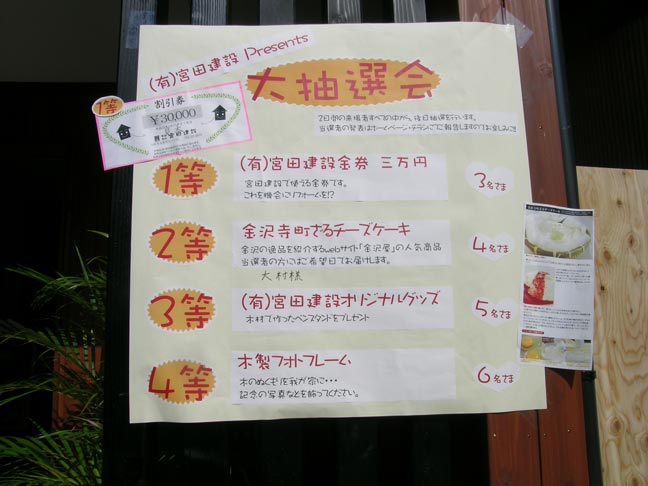 (有)宮田建設 Presents
大抽選会
1等
割引券
¥30,000
2日間の来場者すべての中から、後日抽選を行います。
当選者の発表はホームページ・チラシにて報告しますのでお楽しみに!!
1等
(有)宮田建設金券 三万円
宮田建設で使える金券です。
これを機会にリフォームを!?
3名さま
2等
金沢寺町ざるチーズケーキ
金沢の逸品を紹介するwebサイト「金沢屋」の人気商品
当選者の方にはご希望日でお届けします。
大村様
4名さま
3等
(有)宮田建設オリジナルグッズ
木村で作ったペンスタンドをプレゼント
5名さま
4等
木製フォトフレーム
木のぬくもりを我が家に・・・
記念の写真などを飾ってください。
6名さま